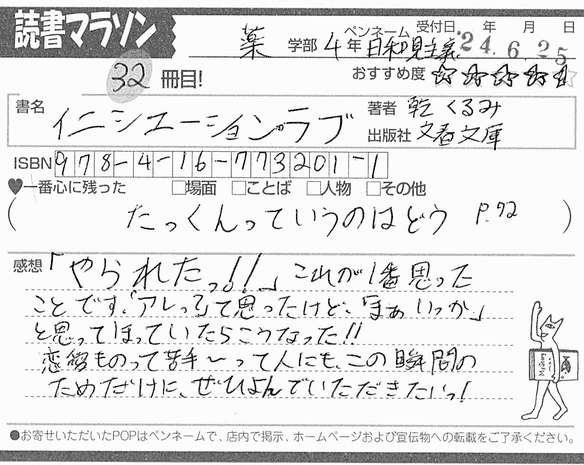 読書マラソン
薬 学部 4年 ペンネーム 日和見主義 受付日 '24年 6月 25日
32 冊目!
おすすめ度 ☆☆☆☆☆
書名 イニシエーション・ラブ
著者 乾 くるみ
出版社 文春文庫
ISBN 978-4-16-773201-1
♥一番心に残った □場面 □ことば □人物 □その他
( たっくんっていうのはどう P.72 )
感想 「やられたっ!!」これが1番思った
ことです。「アレっ?」て思ったけど、「まぁいっか」
と思ってほっていたらこうなった!!
恋愛ものって苦手〜って人にも、この瞬間の
ためだけに、ぜひよんでいただきたいっ!
●お寄せいただいたPOPはペンネームで、店内で掲示、ホームページおよび宣伝物への転載をご了承ください。